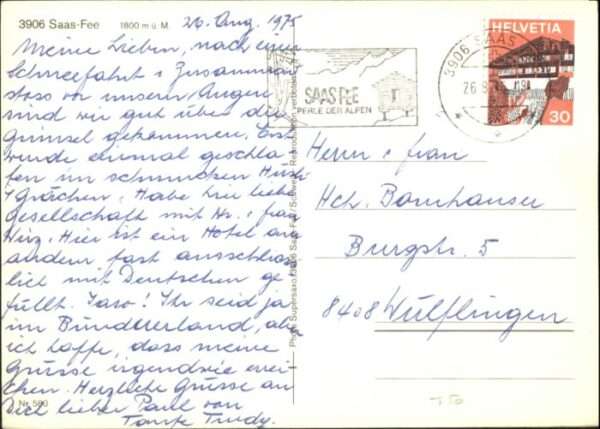 3906 Saas-Fee 1800 m ü. M.
26. Aug. 1975
Meine Lieben, nach einer
Schneefahrt u. Zusammen
stoss vor unsern Augen
sind wir gut über die
Grimsel gekommen. Erst
wurde einmal geschla
fen im schmucken Hüsli
i Grächen. Habe hier liebe
Gesellschaft mit Hr. u. Frau
Wirz. Hier ist ein Hotel am
andern fast ausschliess
lich mit Deutschen ge
füllt. Jaso! Ihr seid ja
im Bündnerland, aber
ich hoffe, dass meine
Grüsse irgendwie errei-
chen. Herzliche Grüsse an
Dich lieber Paul von
Tante Trudy.
Nr. 580
SAAS FEE
PERLE DER ALPEN
3906 SAAS
26.8.
HELVETIA
30
Herrn u. Frau
Hch. Bornhauser
Burgstr. 5
8408 Wülflingen